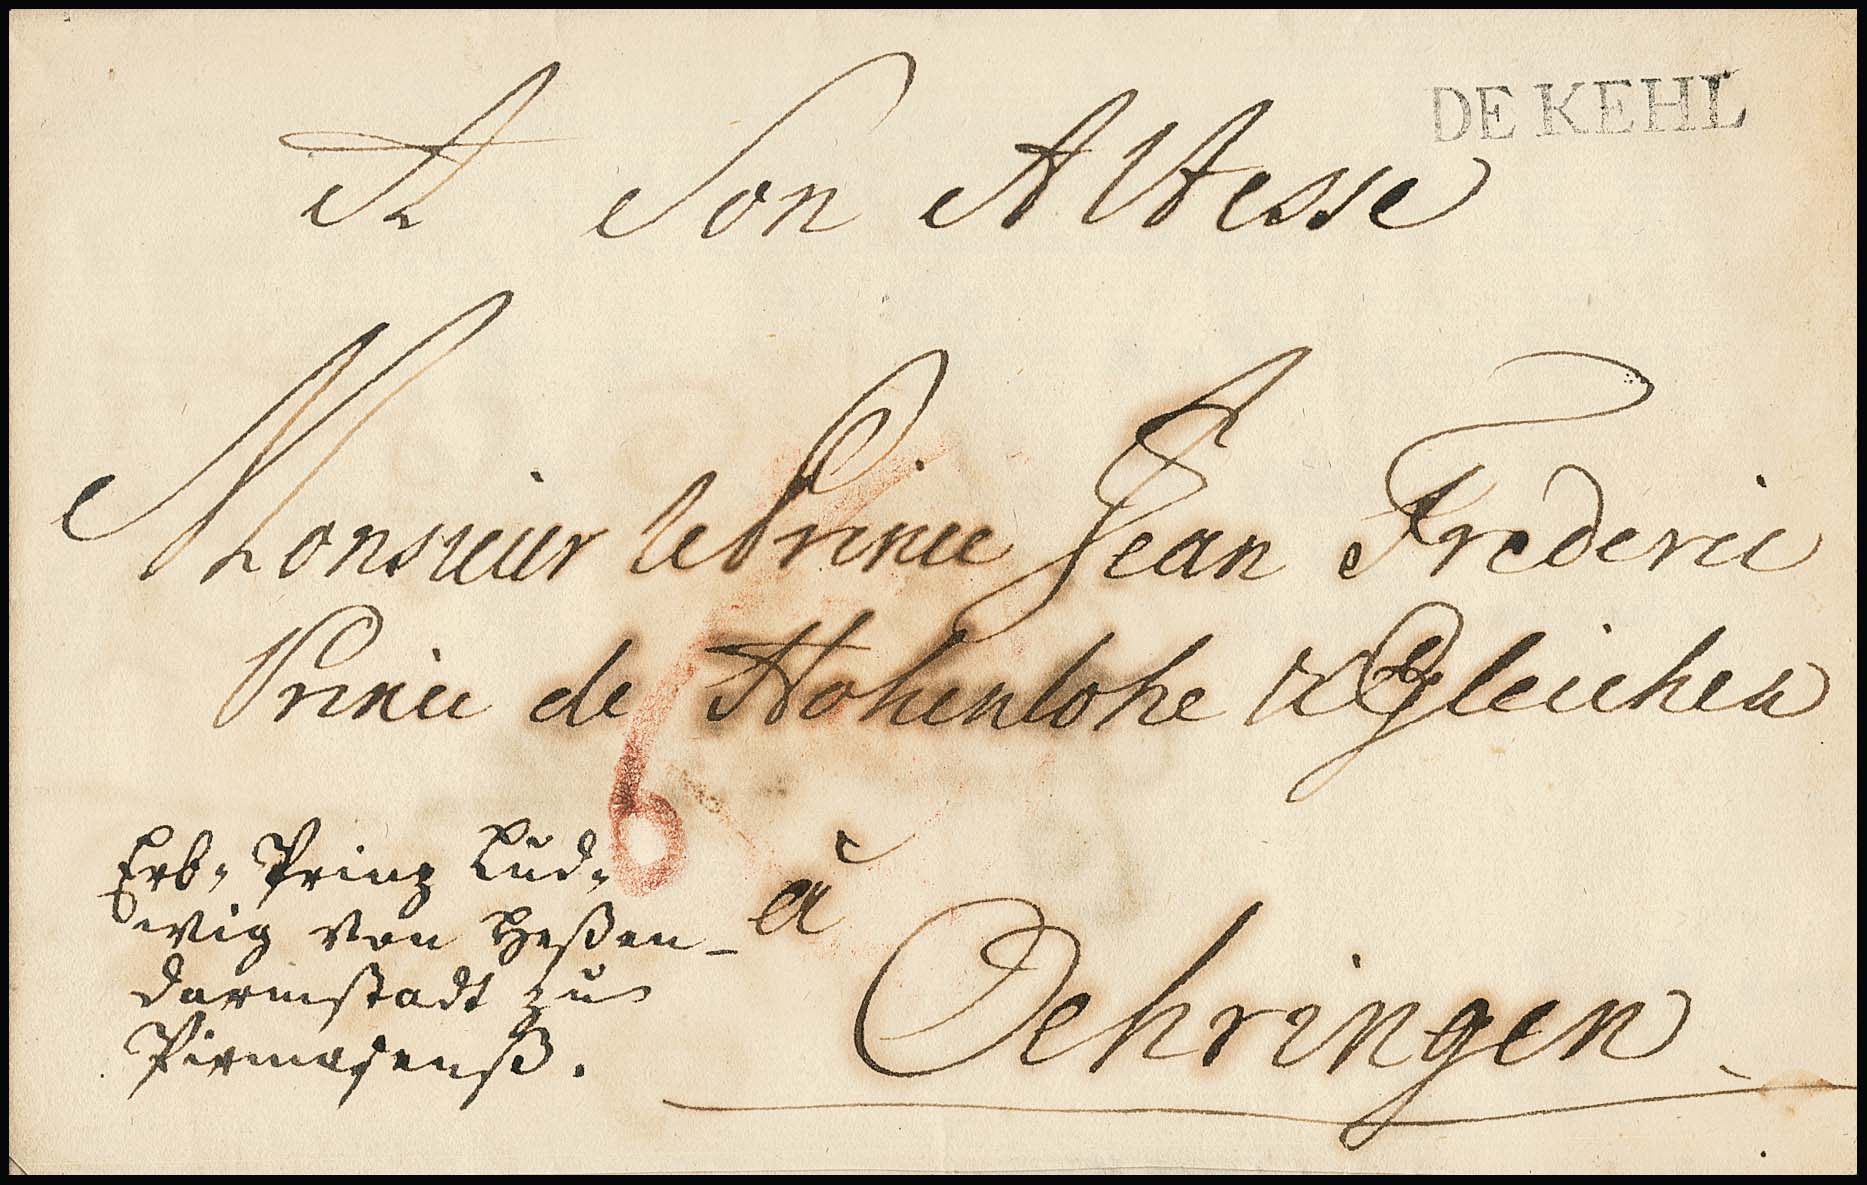 DE KEHL
A Son Altesse
Monsieur le Prince Jean Frederic
Prince de Hohenlohe & Gleichen
6
à
Oehringen
Erb= Prinz Lud=
wig von Heßen-
darmstadt zu
Pirmasenß.